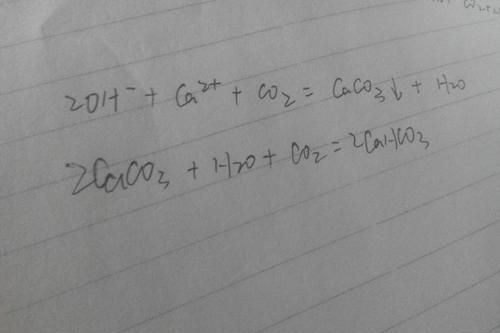 2OH⁻ + Ca²⁺ + CO₂ = CaCO₃↓ + H₂O
2CaCO₃ + H₂O + CO₂ = 2CaHCO₃